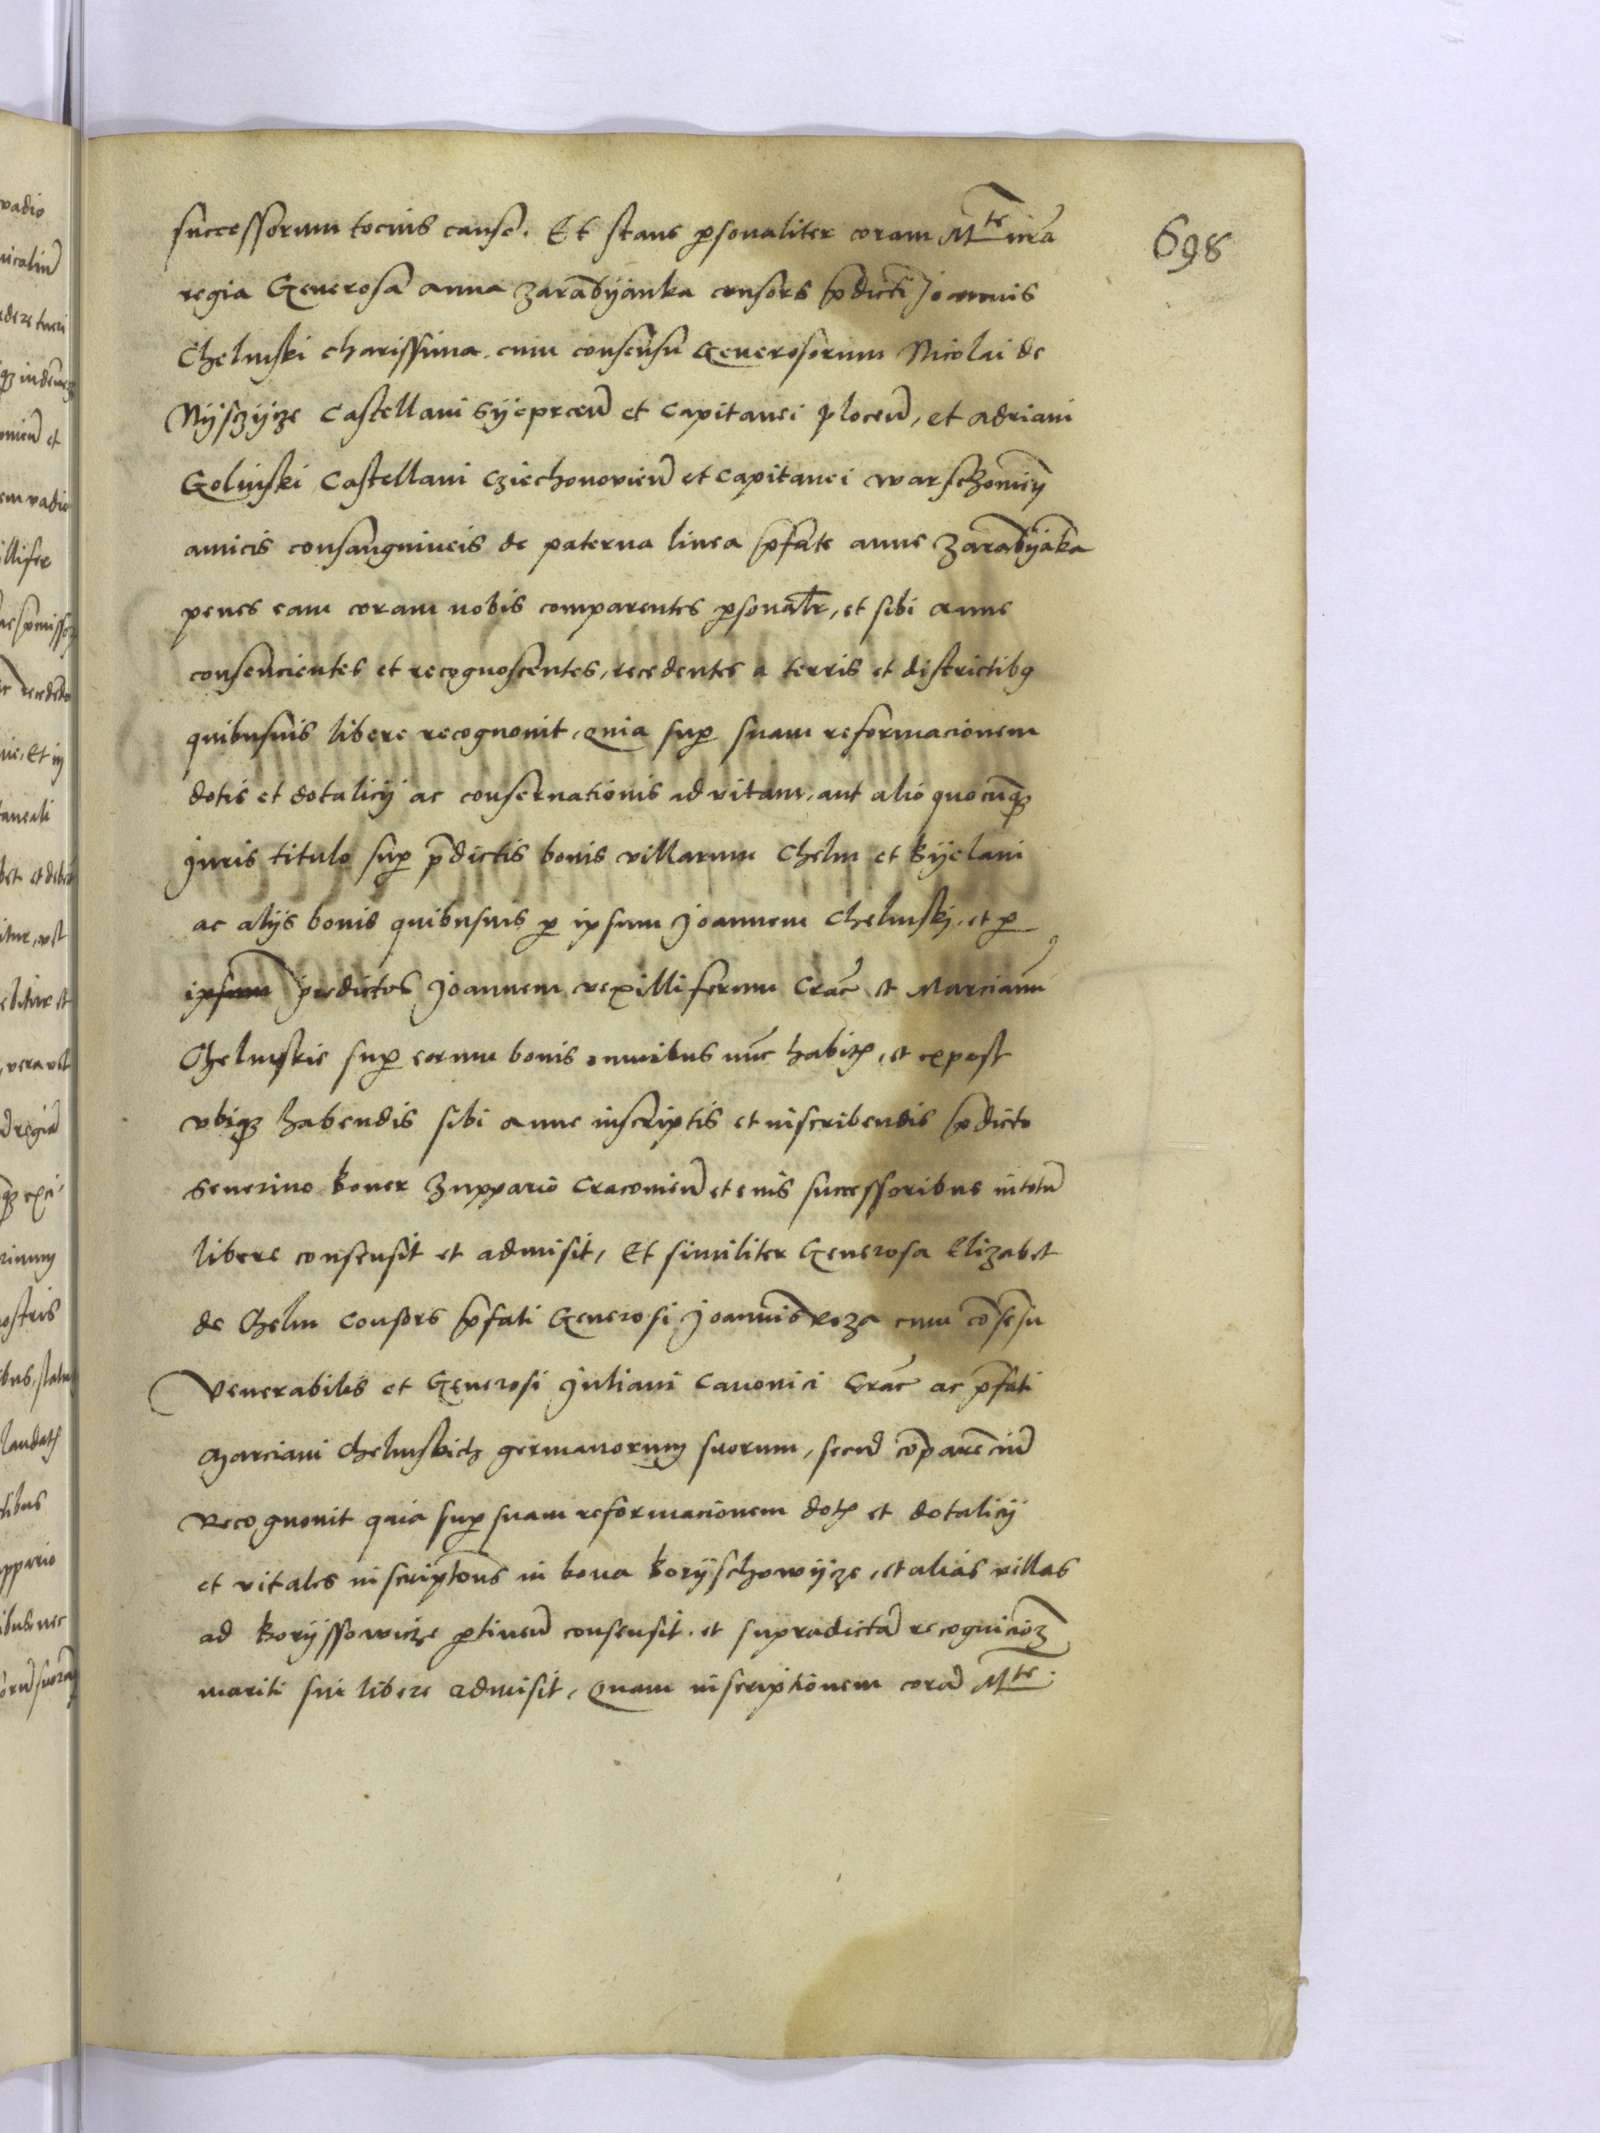 698
successorum tocius cause. Et stans p̱sonaliter coram M<sup>te</sup> nr̃a
regia Generosa anna Zarãbÿanka consors p̃dicti Joannis
Chelmski charissima. cum consensu Generosorum Nicolai de
Nÿsczÿcze Castellani Sÿeprceñ et Capitanei Ploceñ, et Adriani
Golinski Castellani Cziechonovieñ et Capitanei warschoviẽn
amicis consangnineis de paterna linea p̃fate anne Zarãbÿãka
penes eam coram nobis comparentes p̱sonalr̃, et sibi anne
consencientes et recognoscentes, recedentes a terris et districtibꝰ
quibusuis libere recognouit, Quia sup̱ suam reformacionem
dotis et dotalicÿ ac conseruationis ad vitam, aut alio quocunqꝫ
Juris titulo sup̱ p̃dictis bonis villarum Chelm et Kÿelani
ac alÿs bonis quibusuis p̱ ipsum Joannem Chelmskj, et p̱
ipsum predictos Joannem vexilliferum Crac̃ et Marcianũ
Chelmskie sup̱ eorum bonis omnibus nũc habitis, et expost
vbiqꝫ habendis sibi anne inscriptis et inscribendis p̃dicto
Seuerino Boner Zuppario Cracouieñ et eius successoribus in totũ
libere consensit et admisit, Et similiter Generosa Elizabet
de Chelm consors p̃fati Generosi Joannis Roza cum cõsẽsu
Venerabilis et Generosi Juliani Canonici Crac̃ ac p̃fati
Marciani Chelmskich germanorum suorum, secũ cõparẽciũ
Recognouit quia sup̱ suam reformacionem dotis et dotalicÿ
et vitales inscriptões in bona Borÿschowÿze, et alias villas
ad Borÿssowicze p̱tineñ consensit. et supradictã recognicioẽꝫ
mariti sui libere admisit, Quam inscriptionem corã M<sup>te</sup>.